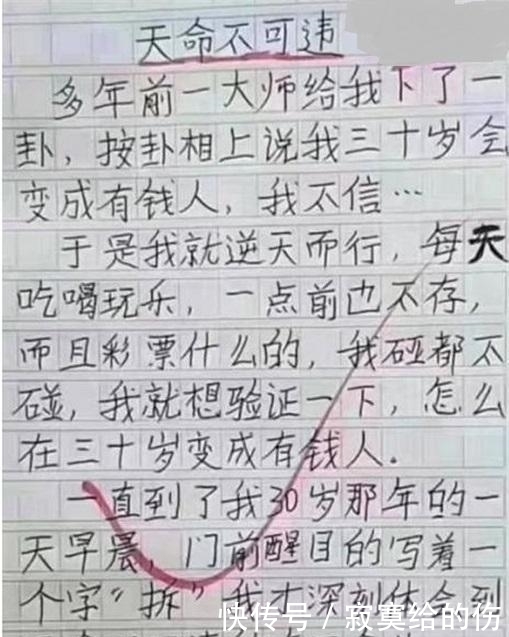 天命不可违
多年前一大师给我下了一
卦，按卦相上说我三十岁会
变成有钱人，我不信…
于是我就逆天而行，每天
吃喝玩乐，一点前也不存，
而且彩票什么的，我碰都不
碰，我就想验证一下，怎么
在三十岁变成有钱人．
一直到了我30岁那年的一
天早晨，门前醒目的写着一
个字“拆”我才深刻体会到
快传号／寂寞给的伤